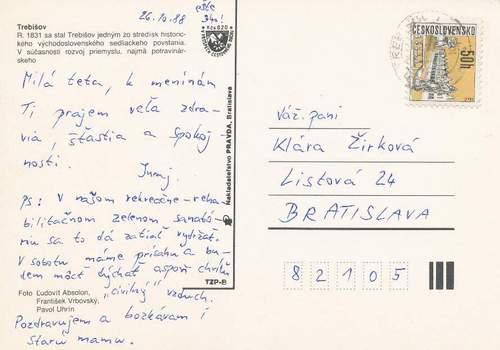 26.10.88
ešte
34x!
Trebišov
R. 1831 sa stal Trebišov jedným zo stredísk historic-
kého východoslovenského sedliackeho povstania.
V súčasnosti rozvoj priemyslu, najmä potravinár-
skeho
Kčs 020
Milá teta, k meninám
Ti prajem veľa zdra-
via, šťastia a spokoj-
nosti.
Juraj
PS: V našom rekreačno-reha-
bilitačnom zelenom sanató-
riu sa to dá zatiaľ vydržať.
V sobotu máme prísahu a bu-
dem môcť dýchať aspoň chvíľu
„civilný“ vzduch.
Pozdravujem a bozkávam i
starú mamu.
Foto Ľudovít Absolon,
František Vrbovský,
Pavol Uhrin
Nakladateľstvo PRAVDA, Bratislava
TZP-B
ČESKOSLOVENSKO
50h
Váž. pani
Klára Žirková
Listová 24
BRATISLAVA
82105